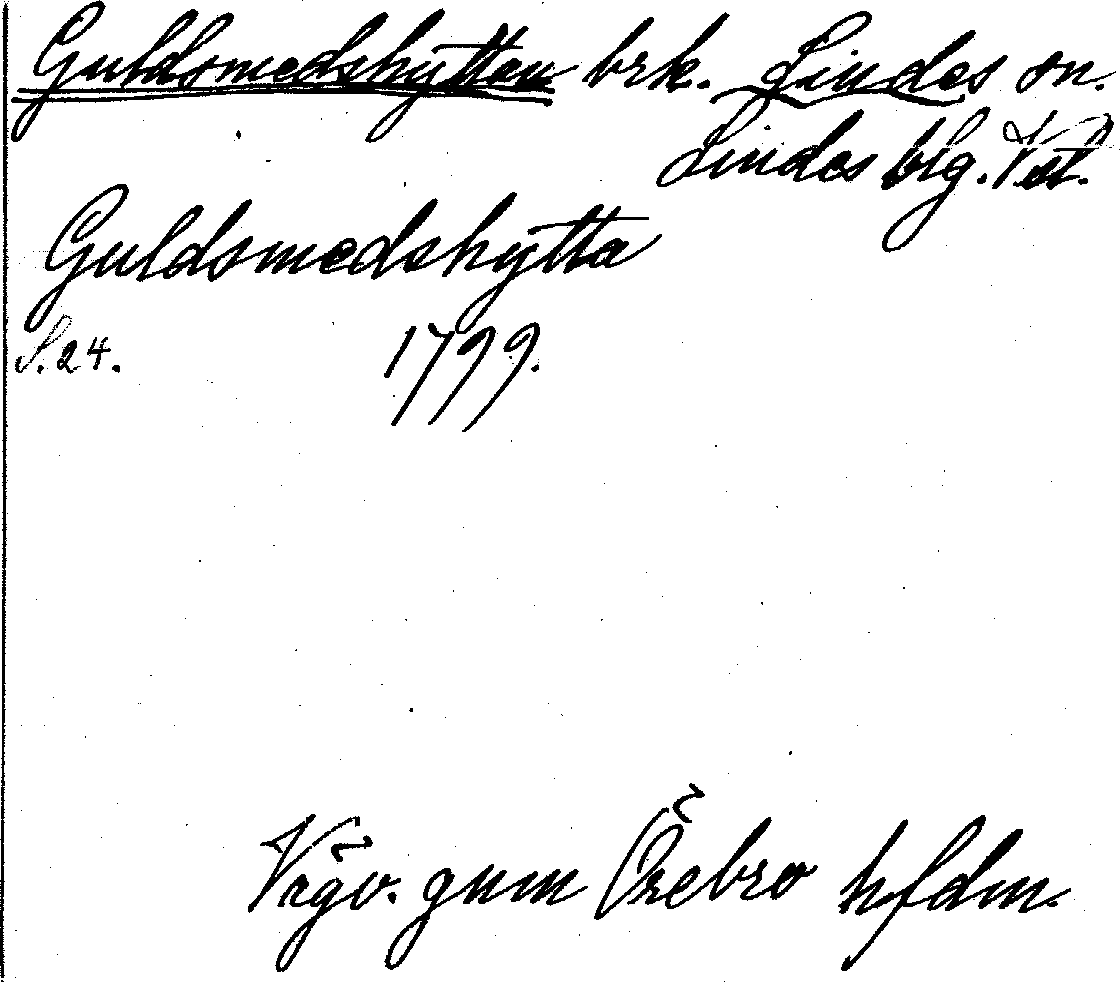 Guldsmedshyttan brk. Lindes sn.
Lindes blg. Vstl.
Guldsmedshytta
S. 24. 1799.
Vägv. gnm Örebro hfdm.